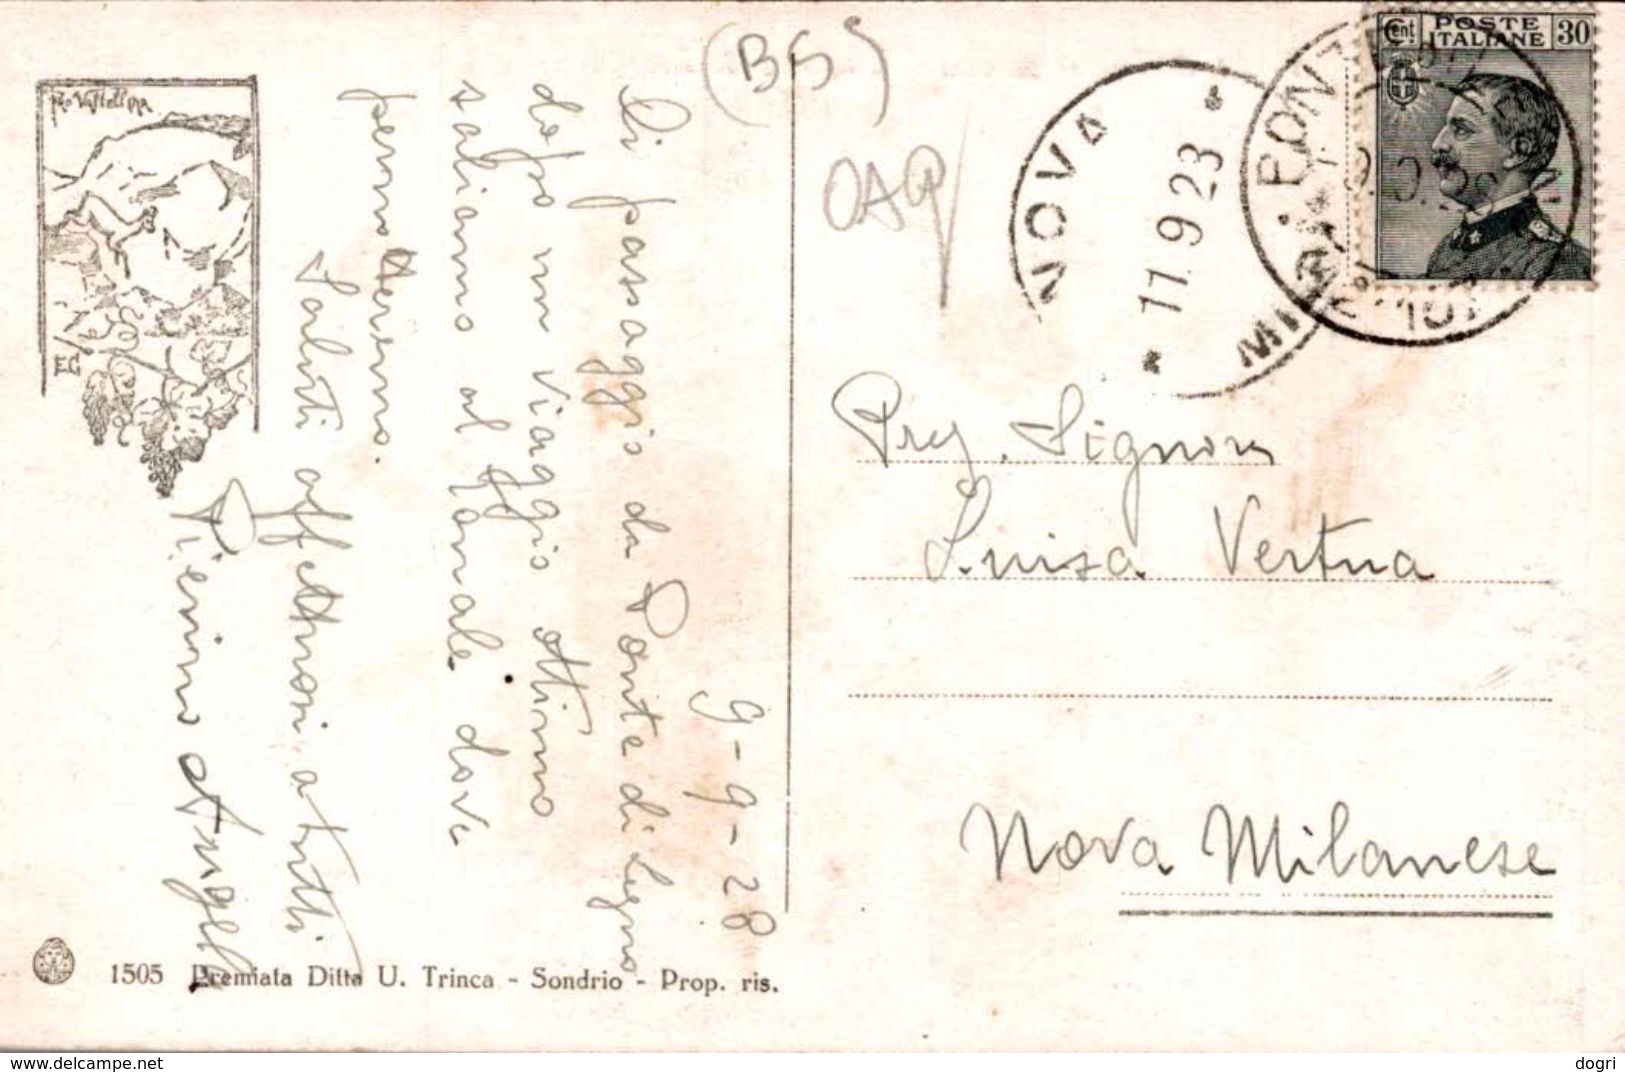 (BS)
OAP
Pro Valtellina
EC
Cent POSTE ITALIANE 30
NOVA
11.9 23
9-9-28
Di passaggio da Ponte di Legno
dopo un viaggio ottimo
saliamo al Tonale dove
pernotteremo.
Saluti affettuosi a tutti
Pierino
Preg. Signora
Luisa Vertua
Nova Milanese
1505 Premiata Ditta U. Trinca - Sondrio - Prop. ris.
https://www.delcampe.net
dogri